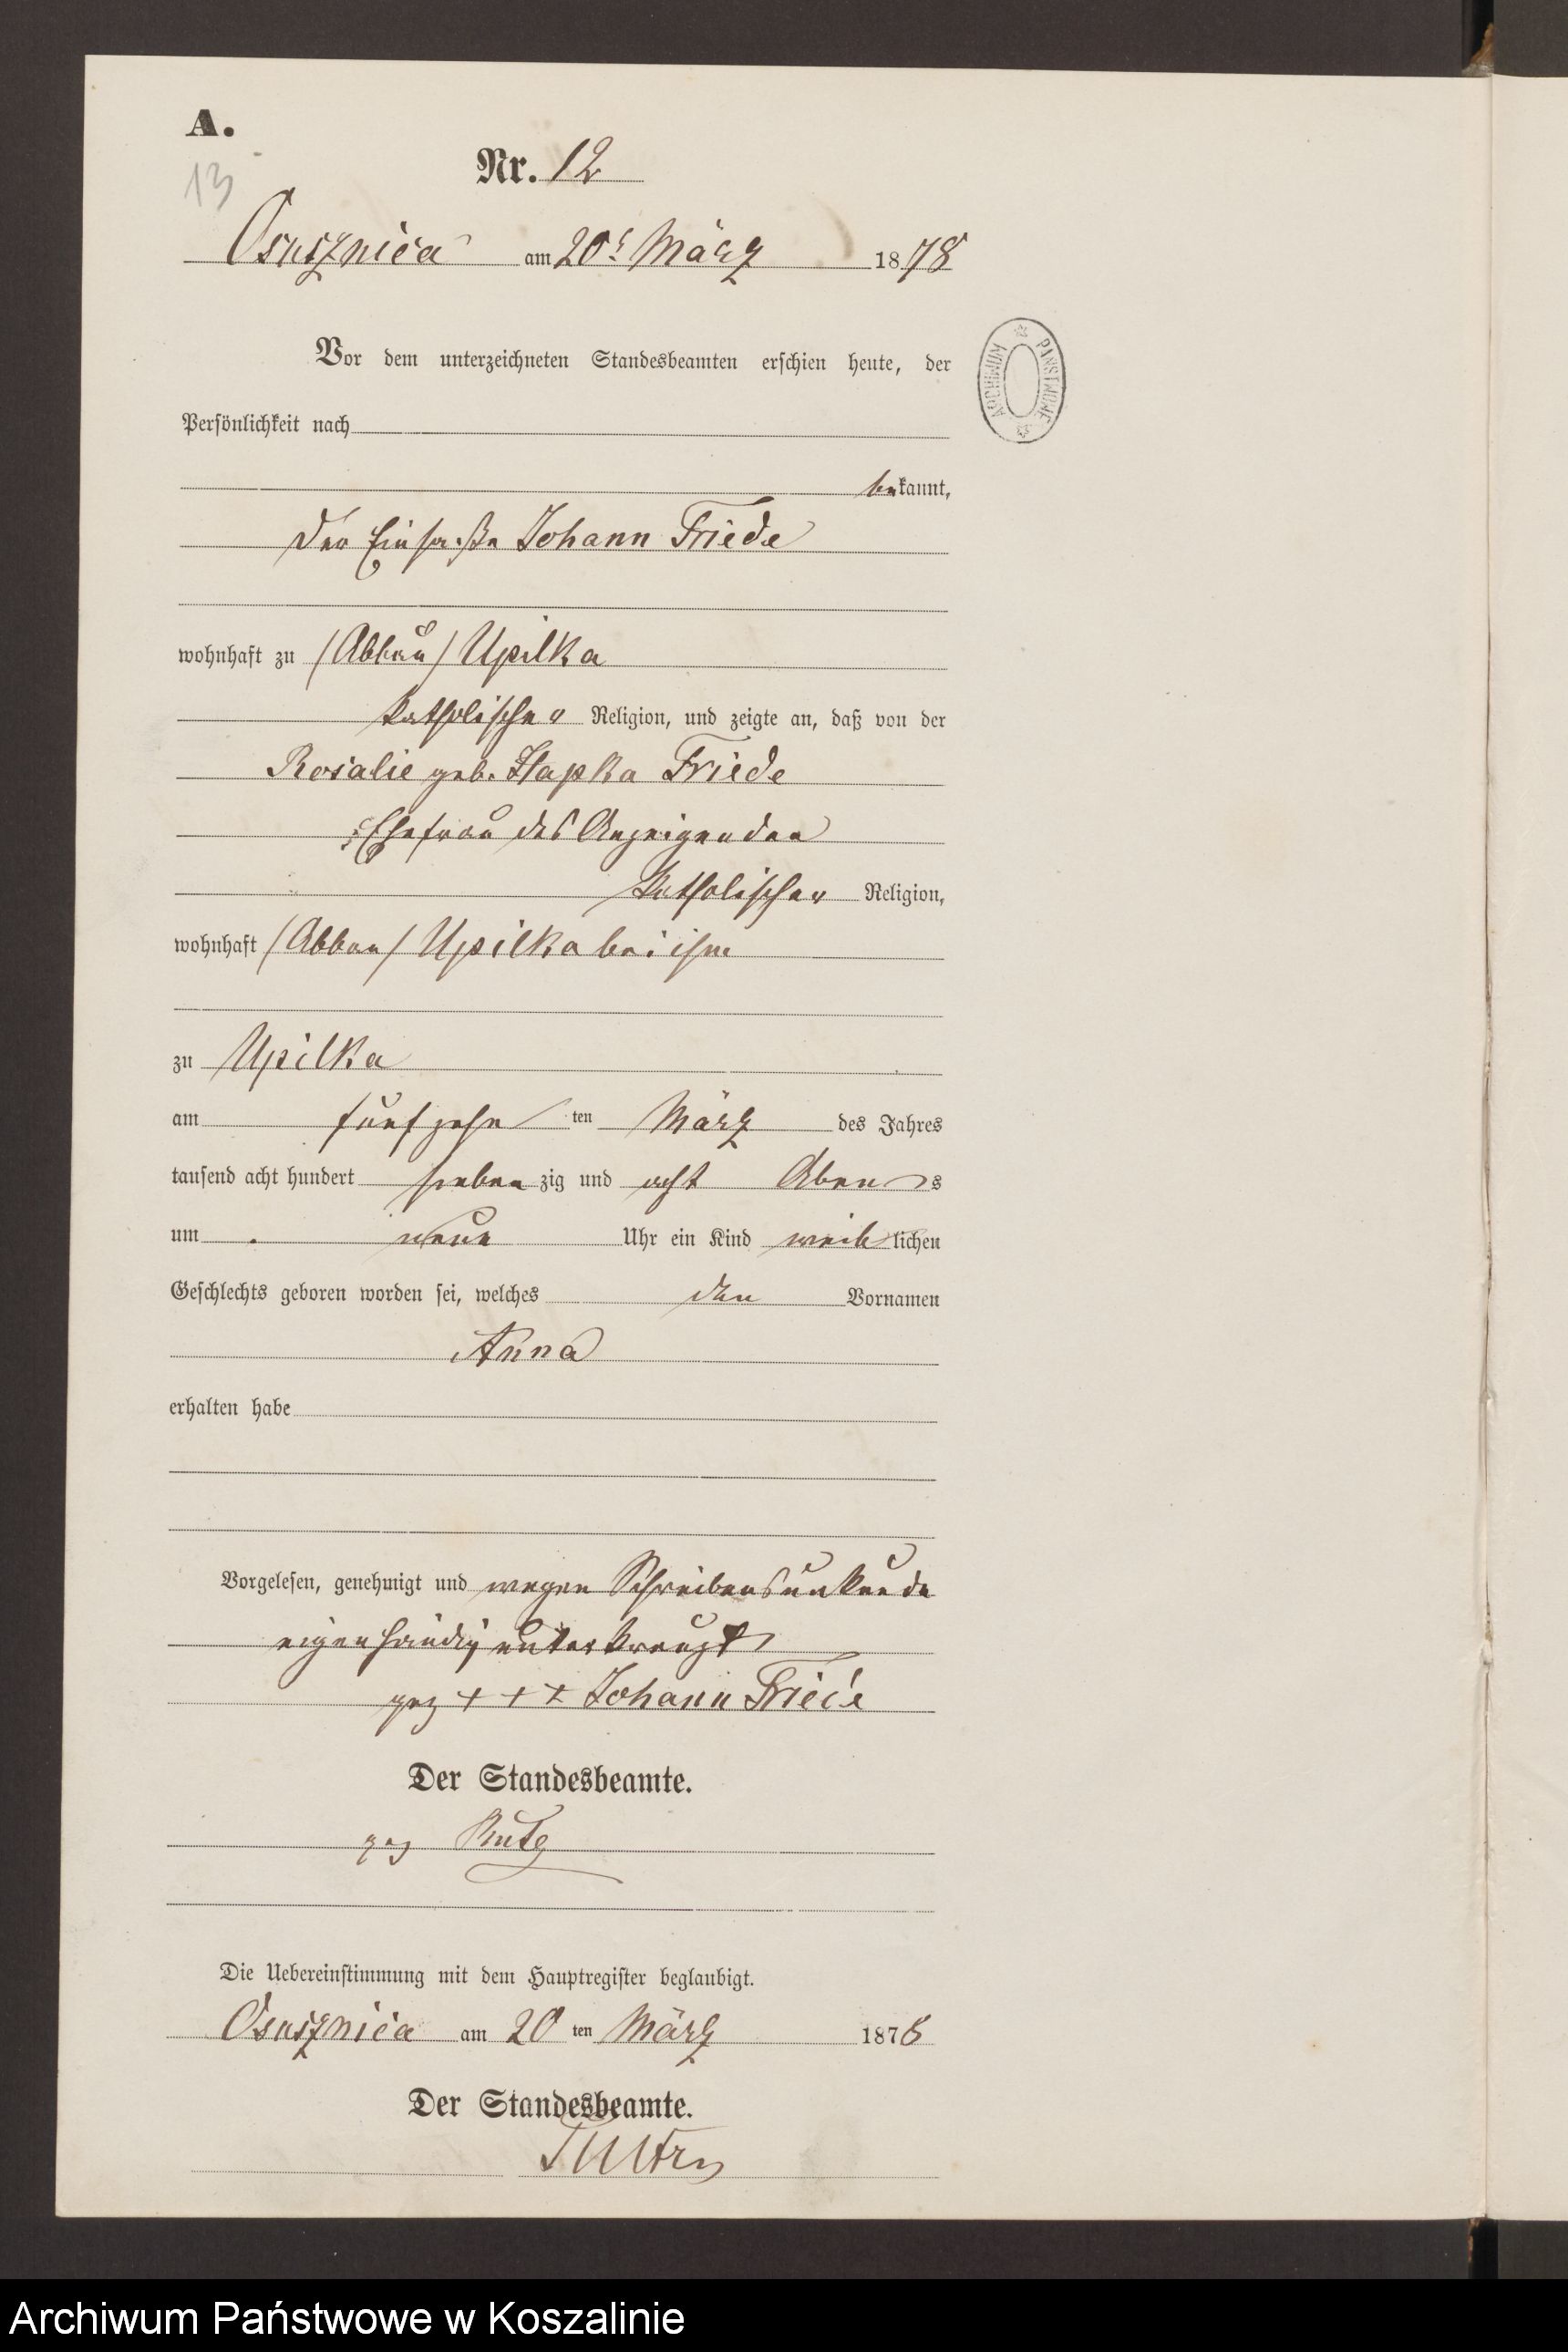 A.
13
Nr. 12
Osusznica am 20t März 1878
Vor dem unterzeichneten Standesbeamten erschien heute, der
Persönlichkeit nach
bekannt,
der Einsaße Johann Friede
wohnhaft zu (Abbau) Upilka
katholischer Religion, und zeigte an, daß von der
Rosalie geb. Hapka Friede
Ehefrau des Anzeigenden
katholischer Religion,
wohnhaft (Abbau) Upilka bei ihm
zu Upilka
am fünfzehn ten März des Jahres
tausend acht hundert sieben zig und acht Abends
um neun Uhr ein Kind weiblichen
Geschlechts geboren worden sei, welches den Vornamen
Anna
erhalten habe
Vorgelesen, genehmigt und wegen Schreibensunkunde
eigenhändig unterkreuzt
gez + + + Johann Friede
Der Standesbeamte.
gez
Die Uebereinstimmung mit dem Hauptregister beglaubigt.
Osusznica am 20 ten März 1878
Der Standesbeamte.
ARCHIWUM PAŃSTWOWE
Archiwum Państwowe w Koszalinie